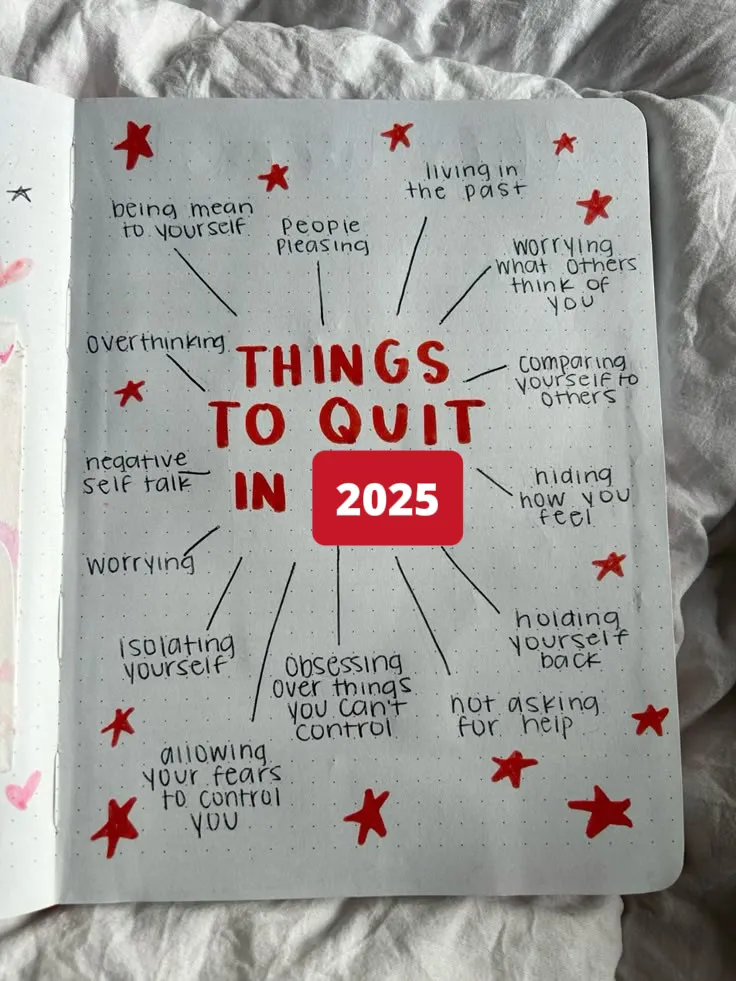 living in
the past
being mean
to yourself
People
Pleasing
worrying
what others
think of
you
overthinking
THINGS
TO QUIT
IN 2025
comparing
yourself to
others
negative
self talk
hiding
how you
feel
worrying
isolating
yourself
obsessing
over things
you can't
control
holding
yourself
back
not asking
for help
allowing
your fears
to control
you